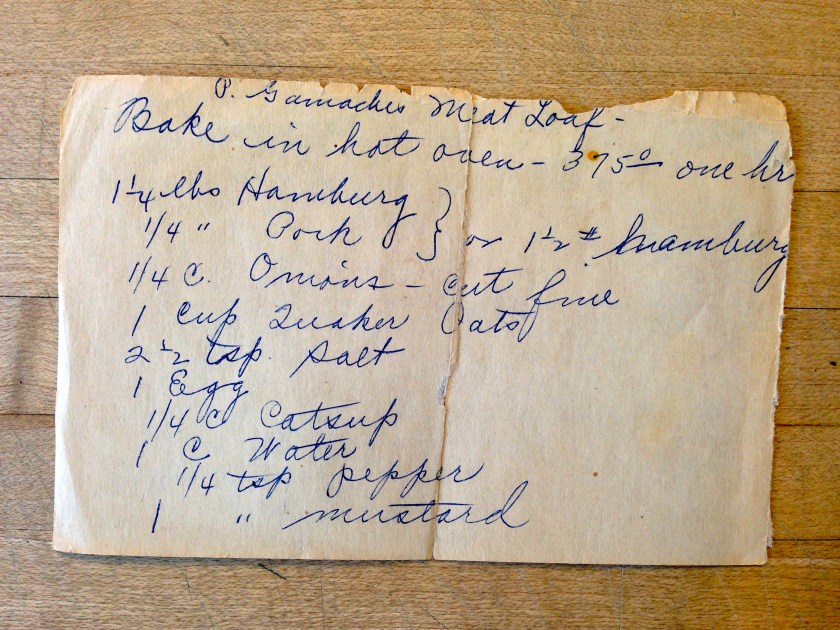 P. Gamache's Meat Loaf -
Bake in hot oven - 375° one hr
1 1/4 lbs Hamburg
1/4 " Pork } or 1 1/2 # Hamburg
1/4 C. Onions - cut fine
1 Cup Quaker Oats
2 1/2 tsp. Salt
1 Egg
1/4 C Catsup
1 C Water
1/4 tsp pepper
1 " mustard